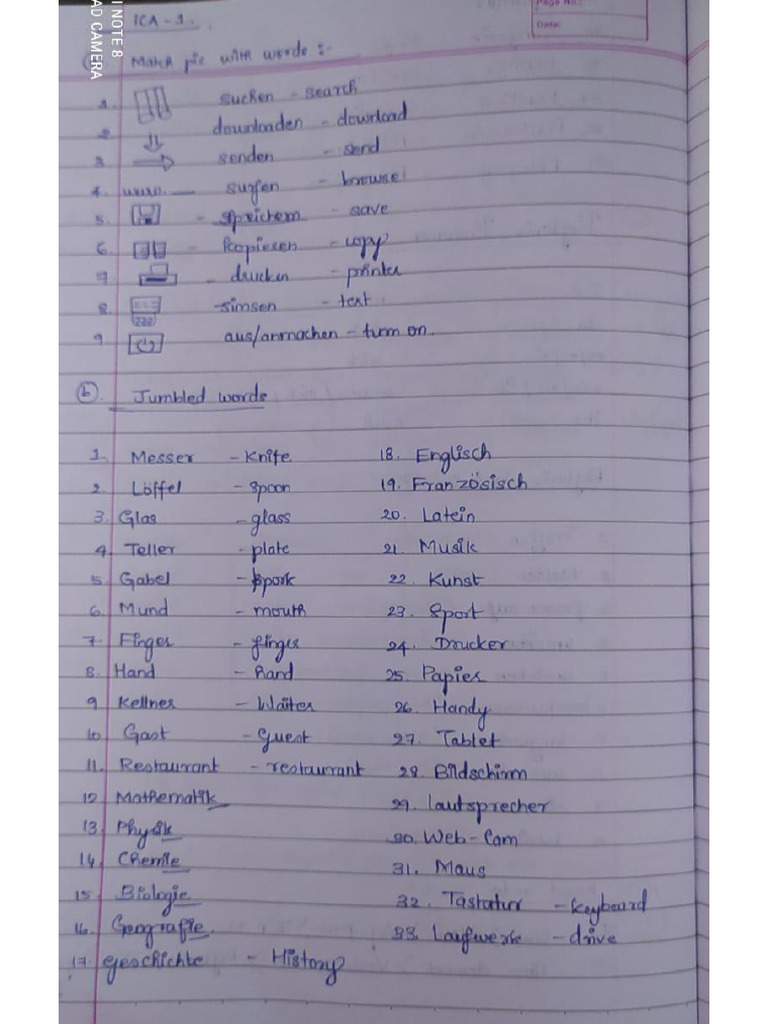 I NOTE 8
AD CAMERA
Page No.:
Date:
ICA - 1.
Match pic with words :-
1. suchen - search
2. downloaden - download
3. senden - send
4. www. — surfen - browse
5. - speichern - save
6. - kopieren - copy
7. - drucken - printer
8. simsen - text
9. aus/anmachen - turn on.
b. Jumbled words
1. Messer - Knife
2. Löffel - spoon
3. Glas - glass
4. Teller - plate
5. Gabel - spork
6. Mund - mouth
7. Finger - finger
8. Hand - Hand
9. Kellner - Waiter
10. Gast - Guest
11. Restaurant - restaurant
12. Mathematik
13. Physik
14. Chemie
15. Biologie
16. Geografie.
17. Geschichte - History
18. Englisch
19. Französisch
20. Latein
21. Musik
22. Kunst
23. Sport
24. Drucker
25. Papier
26. Handy
27. Tablet
28. Bildschirm
29. lautsprecher
30. Web-Cam
31. Maus
32. Tastatur - keyboard
33. Laufwerk - drive